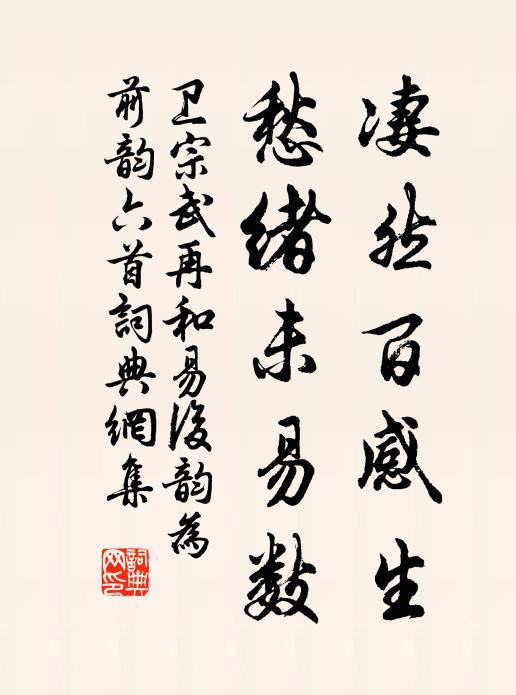 凄然百感生
愁绪未易数
卫宗武再和易後韵為
前韵六首詞典網集
詞典网印